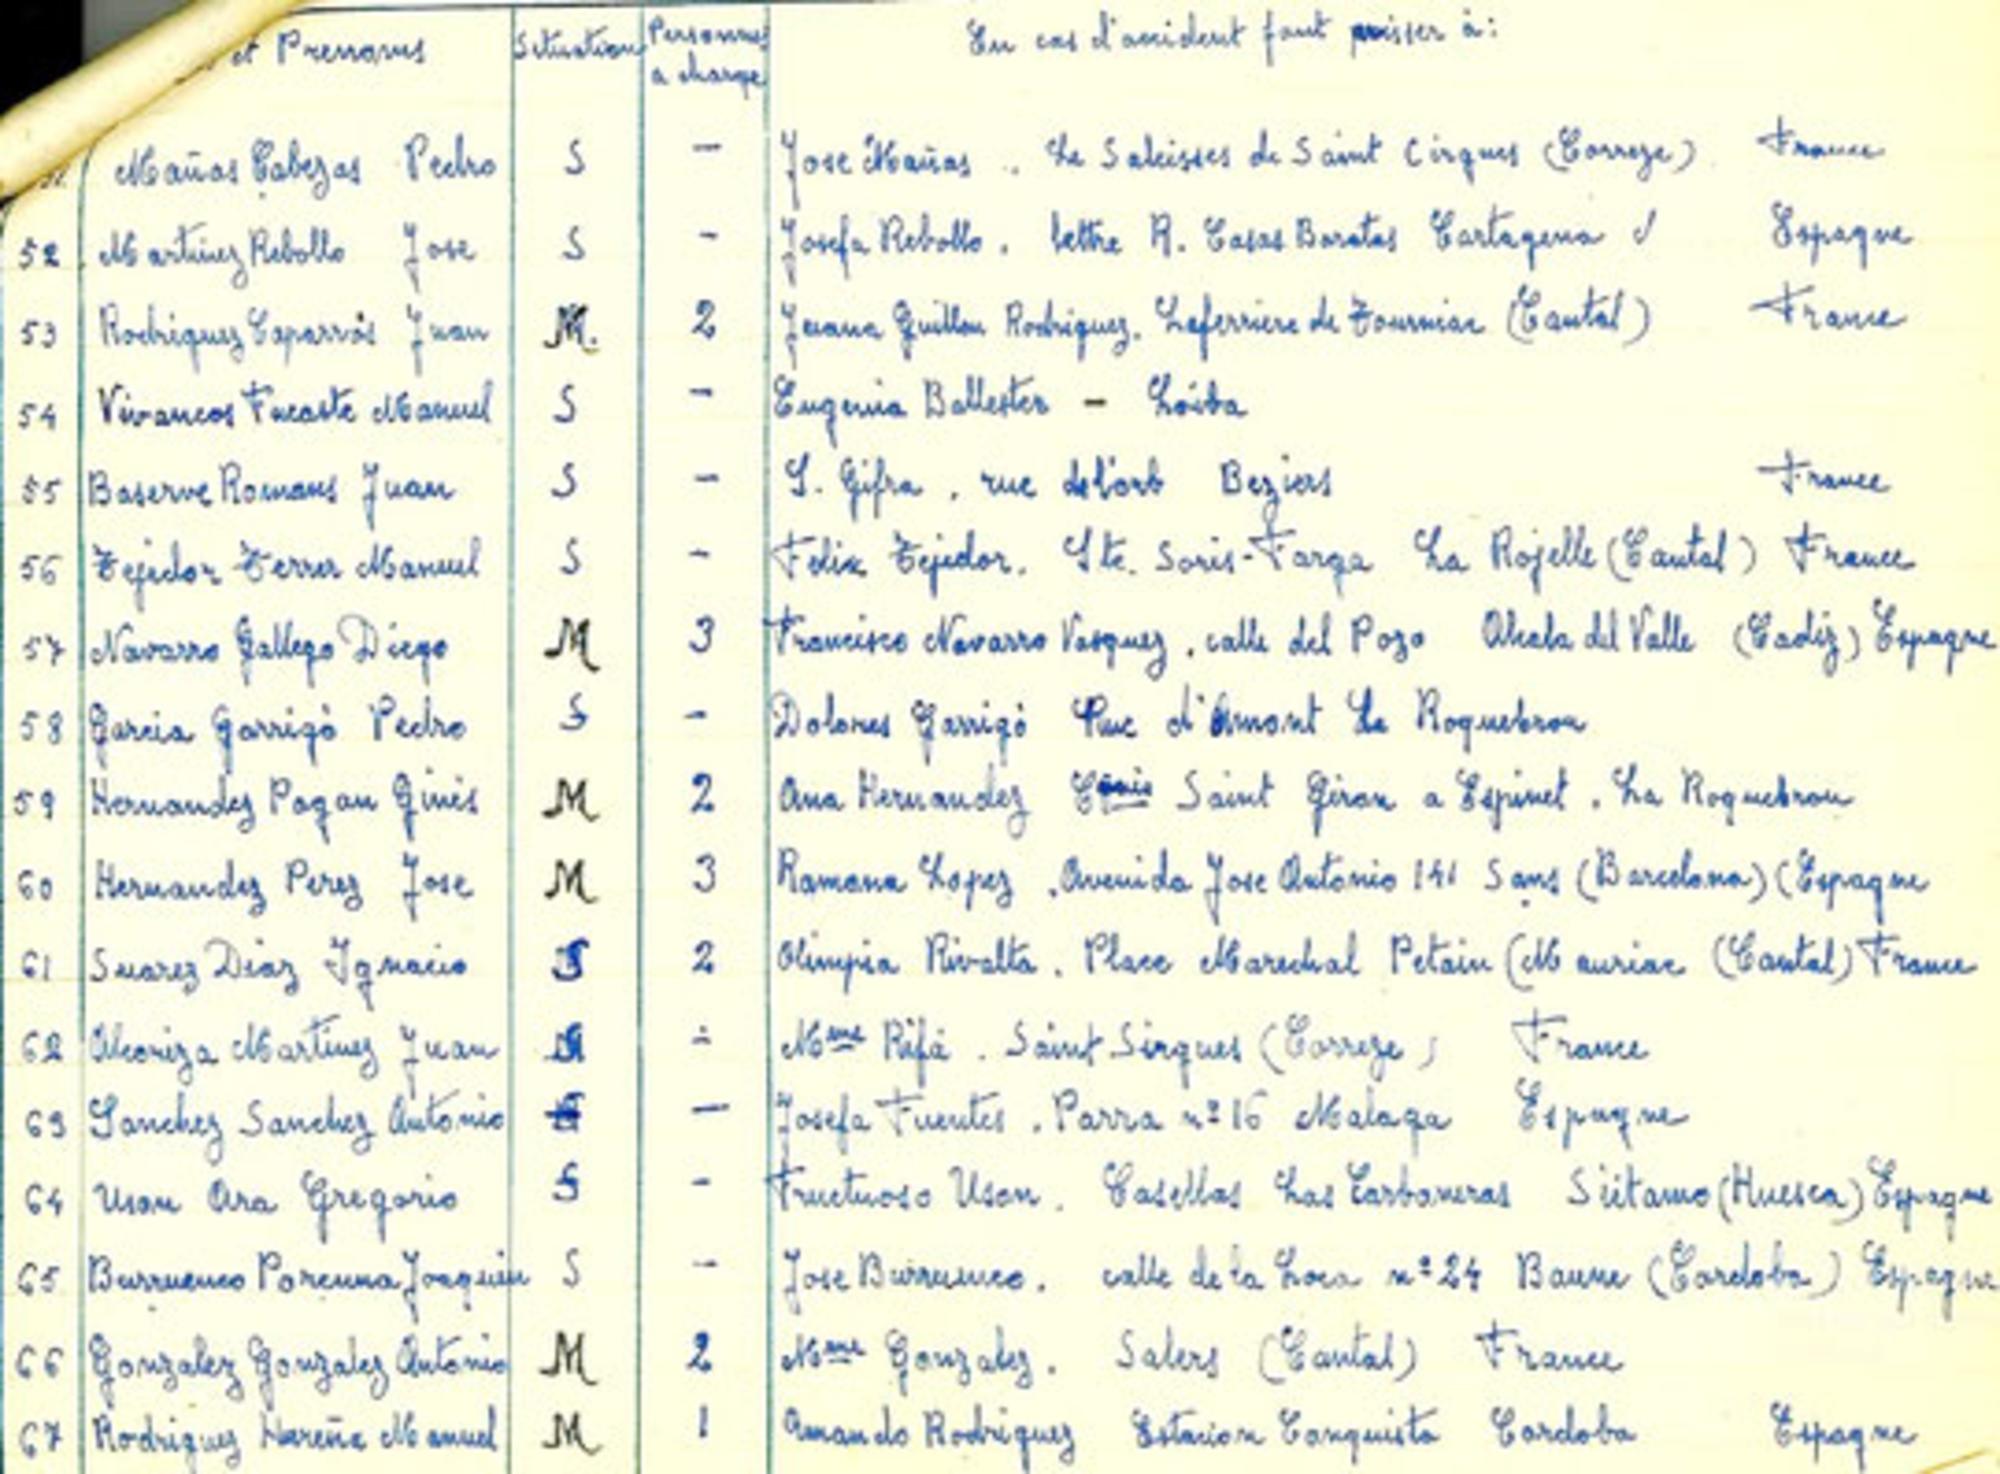 et Prenoms Situation Personnes a charge En cas d'accident faut à:
Mañas Cabezas Pedro S — Jose Mañas. La Saleisses de Saint Cirques (Correze) France
52 Martinez Rebollo Jose S - Josefa Rebollo. lettre R. Casas Baratas Cartagena Espagne
53 Rodriguez Caparrós Juan M. 2 Juana Guillen Rodriguez. Laferriere de Tourniac (Cantal) France
54 Vivancos Manuel S - Eugenia Ballester -
55 Baserve Romans Juan S - S. Gifra, rue de l'orb Beziers France
56 Tejedor Ferrer Manuel S - Felix Tejedor. Ste. Soris-Farga La Rojelle (Cantal) France
57 Navarro Gallego Diego M 3 Francisco Navarro Vasquez, calle del Pozo Alcala del Valle (Cadiz) Espagne
58 Garcia Garrigò Pedro S - Dolores Garrigò Rue d'Amont La Roquebrou
59 Hernandez Pagan Ginés M 2 Ana Hernandez Saint Giron a Espinet. La Roquebrou
60 Hernandez Perez Jose M 3 Ramona Lopez, Avenida Jose Antonio 141 Sans (Barcelona) (Espagne
61 Suarez Diaz Ignacio S 2 Olimpia Rivalta. Place Marechal Petain (Mauriac (Cantal) France
62 Alcoriza Martinez Juan Mme Rifá. Saint Sirques (Correze) France
63 Sanchez Sanchez Antonio — Josefa Fuentes. Parra nº 16 Malaga Espagne
64 Uson Ara Gregorio S - Fructuoso Uson. Casellas Las Carboneras Siétamo (Huesca) Espagne
65 Burrueco Porcuna Joaquin S - Jose Burrueco. calle de la Loca nº 24 Baune (Cordoba) Espagne
66 Gonzalez Gonzalez Antonio M 2 Mme Gonzalez. Salers (Cantal) France
67 Rodriguez Manuel M 1 Amando Rodriguez Estacion Conquista Cordoba Espagne